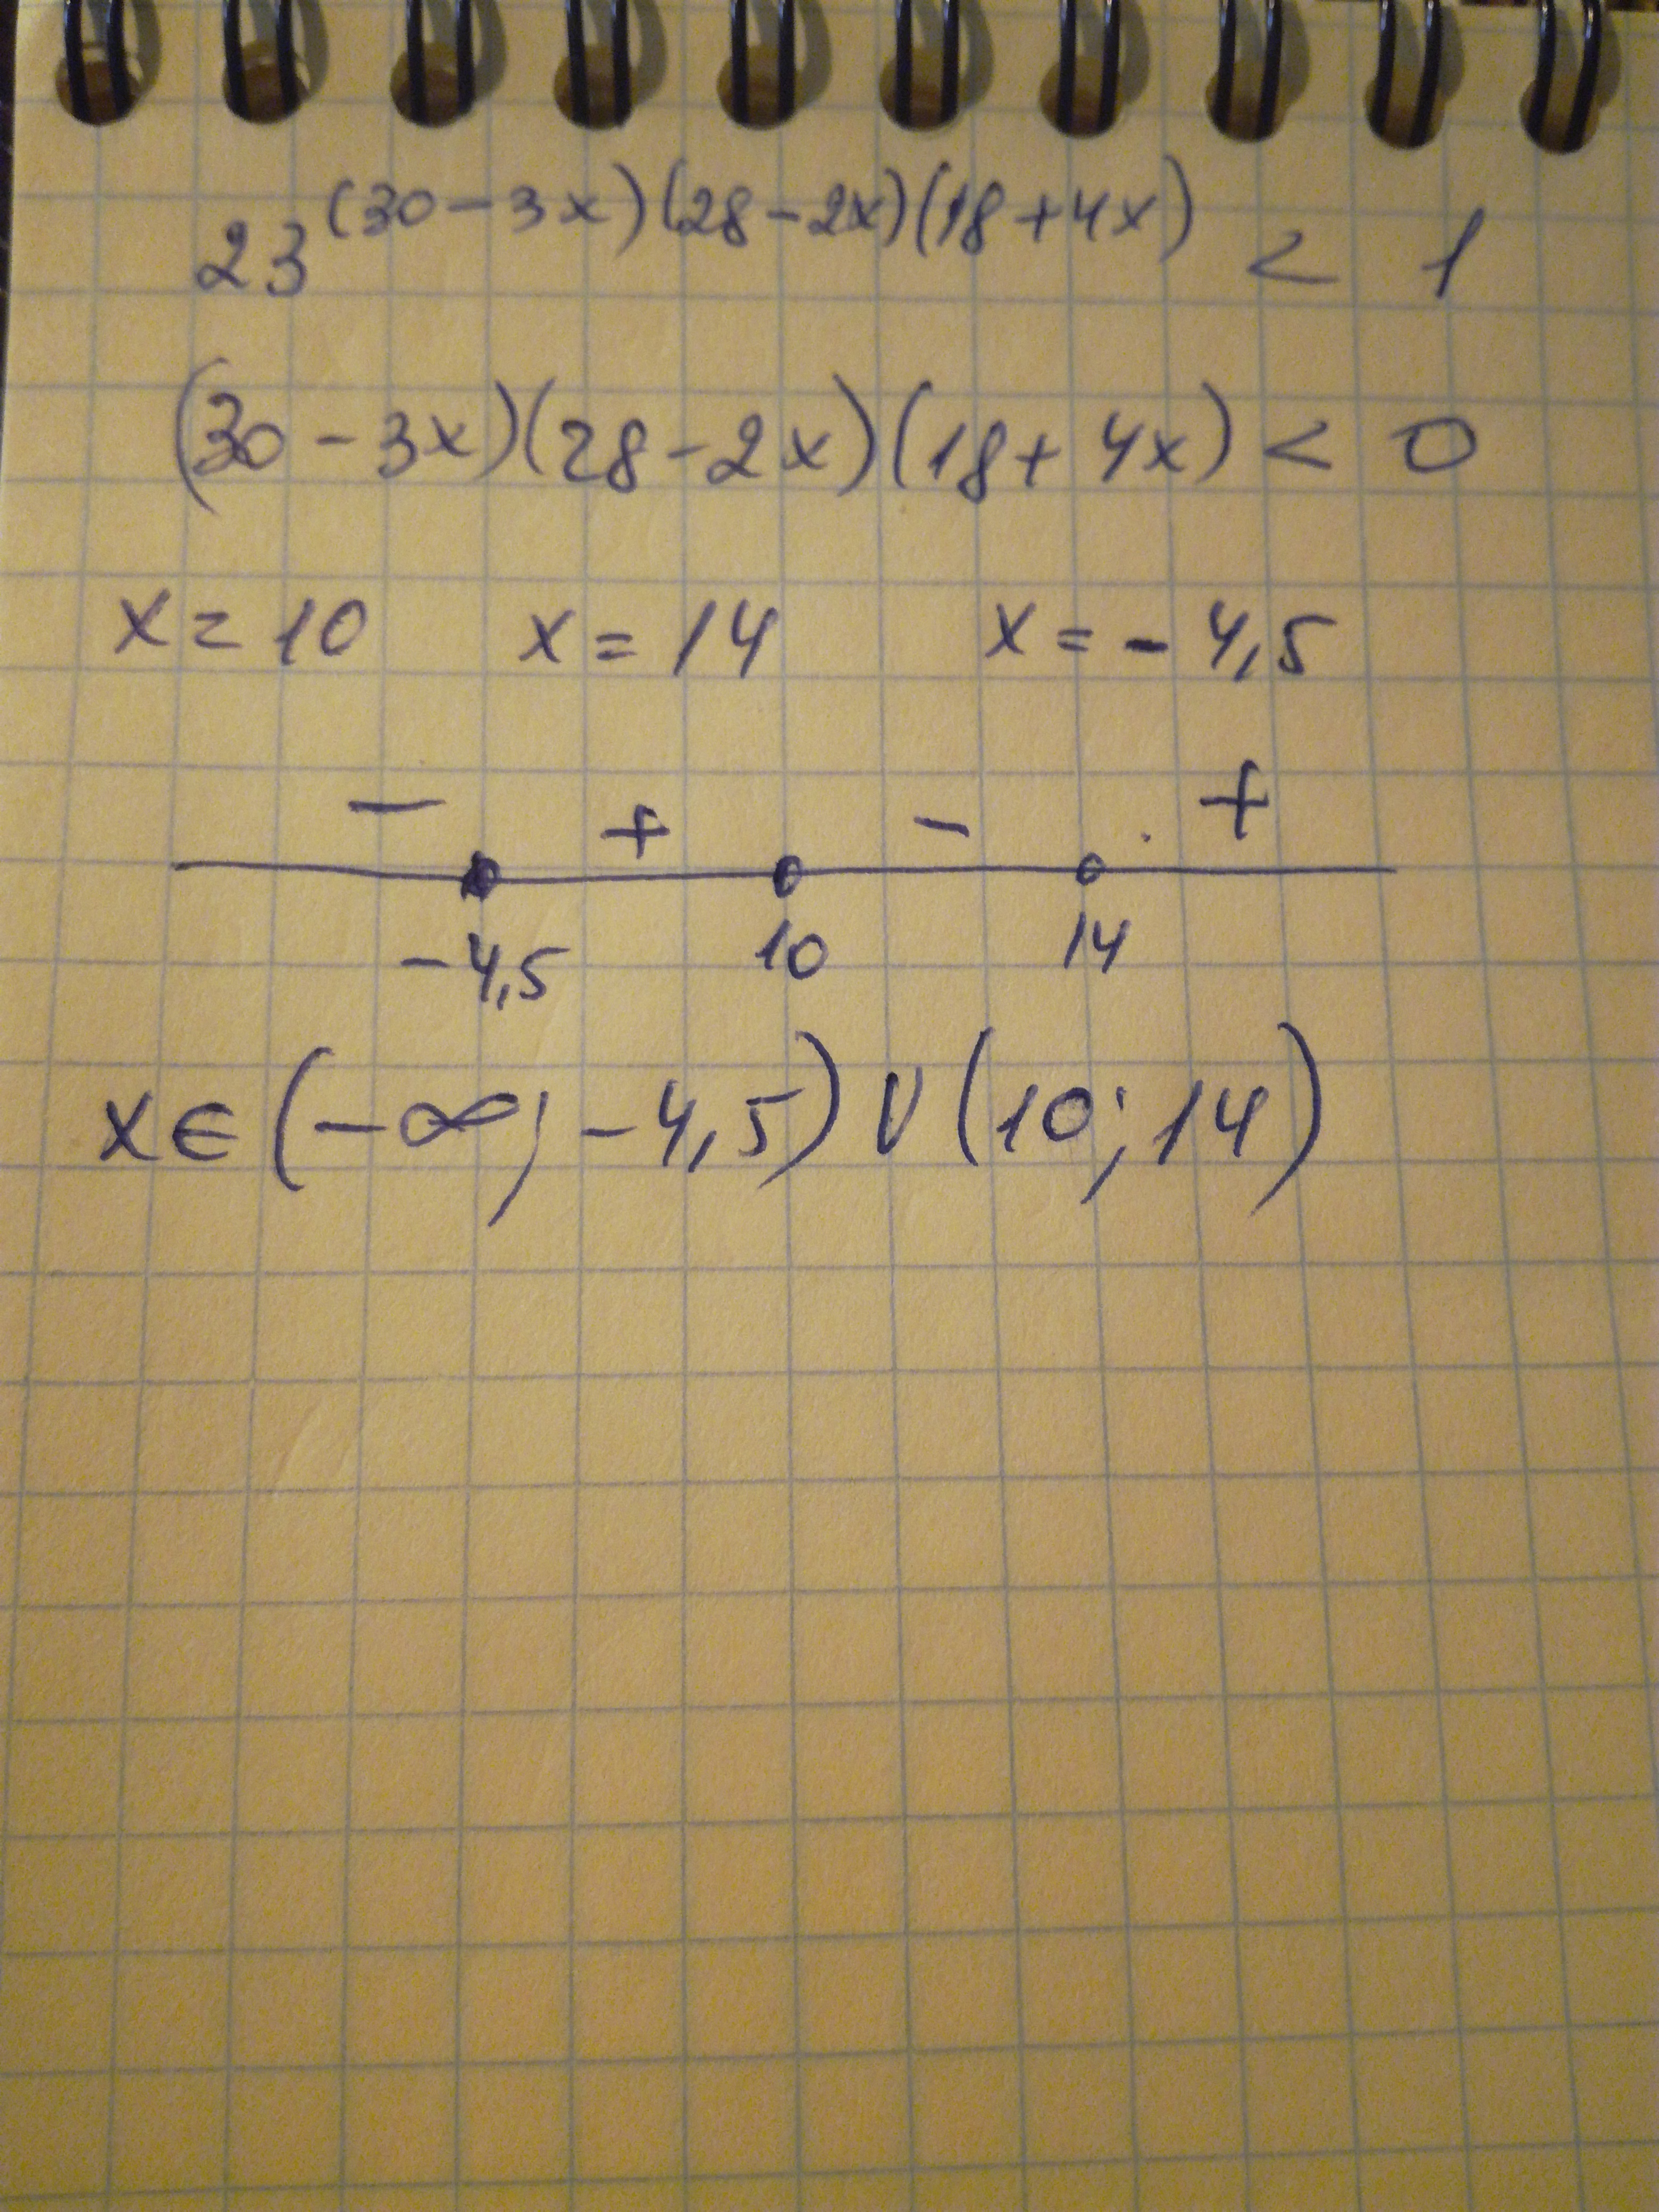 23^(30-3x)(28-2x)(18+4x) < 1
(30-3x)(28-2x)(18+4x) < 0
x=10 x=14 x=-4,5
- + - +
-4,5 10 14
x∈(-∞;-4,5)∪(10;14)